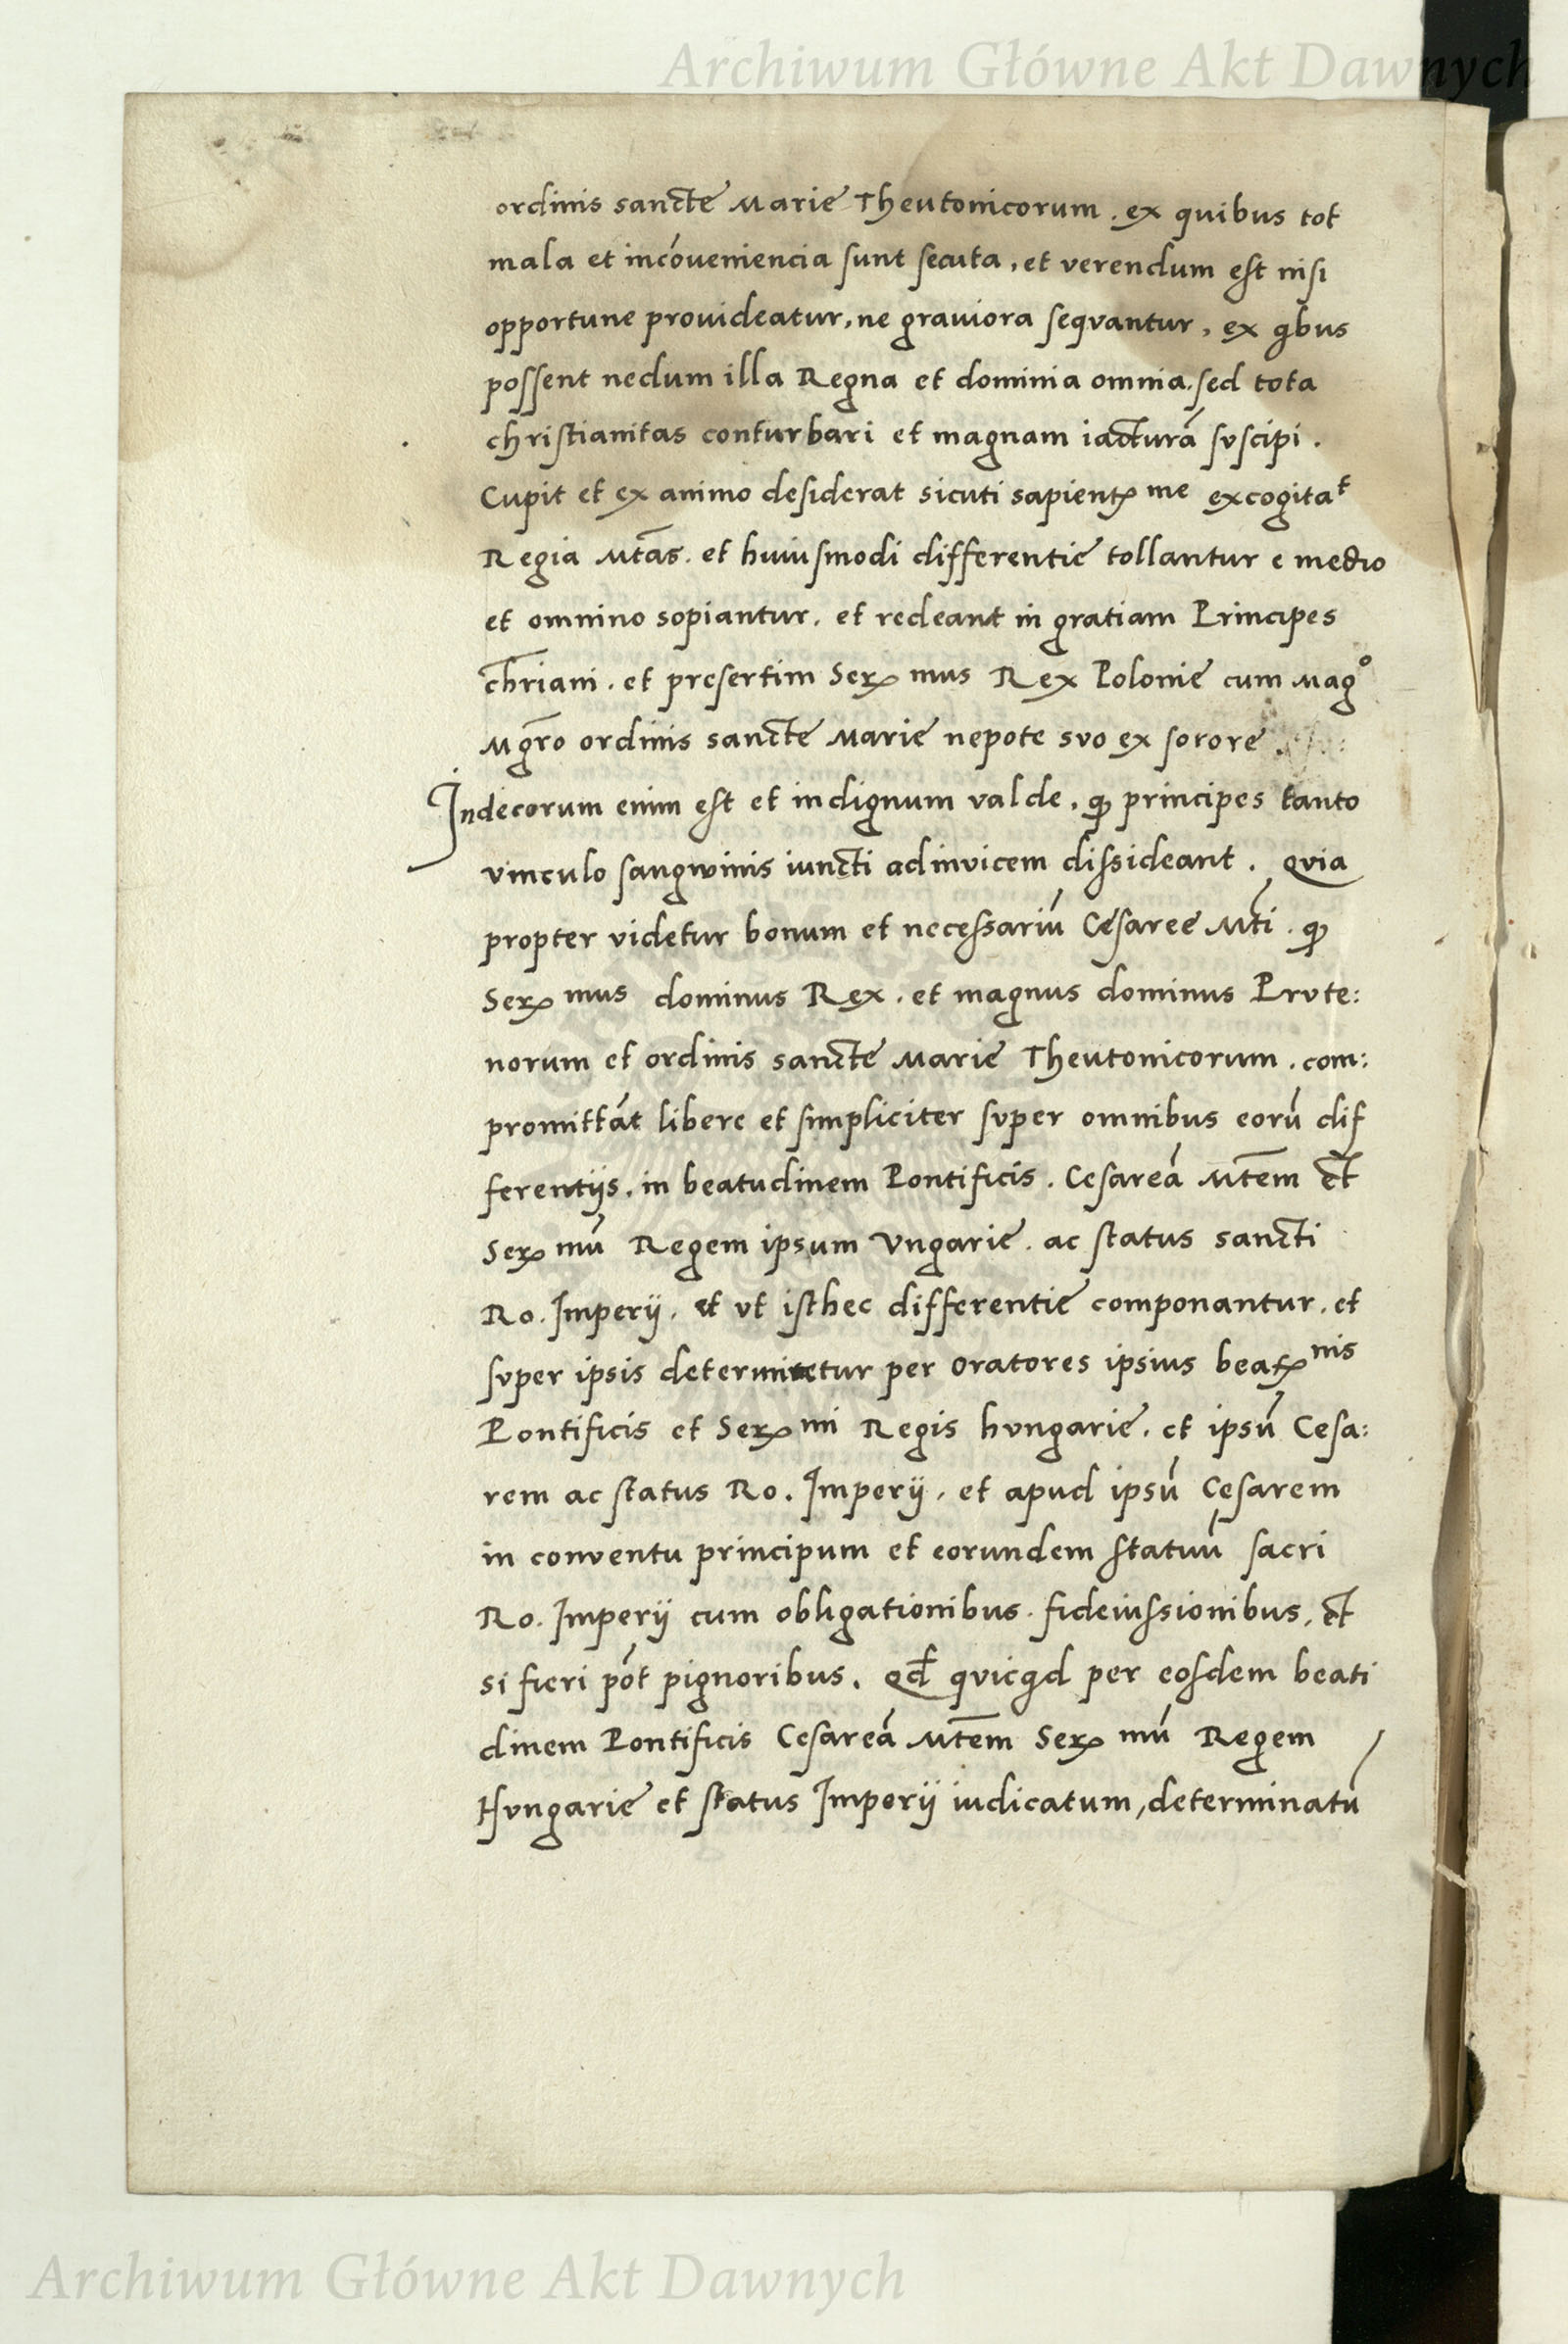 Archiwum Główne Akt Dawnych
ordinis sancte Marie Theutonicorum . ex quibus tot
mala et incōueniencia sunt secuta , et verendum est nisi
opportune prouideatur, ne grauiora seqvantur , ex qbus
possent nedum illa Regna et dominia omnia . sed tota
christianitas conturbari et magnam iacturā svscipi .
Cupit et ex animo desiderat sicuti sapientꝫ me excogitat
Regia Mtās . et huiusmodi differentie tollantur e medio
et omnino sopiantur . et redeant in gratiam Principes
chr̄iani . et presertim Serꝫ mus Rex Polonie cum Mag°
Mgr̄o ordinis sancte Marie nepote svo ex sorore .
Indecorum enim est et indignum valde . ꝙ principes tanto
vinculo sangwinis iuncti adinvicem dissideant . Qvia
propter videtur bonum et necessariū Cesaree Mti . ꝙ
Serꝫ mus dominus Rex . et magnus dominus Prvte:
norum et ordinis sancte Marie Theutonicorum . com:
promittāt libere et simpliciter svper omnibus eorū dif
ferentijs . in beatudinem Pontificis . Cesareā Mtēm et
Serꝫ mū Regem ipsum Vngarie . ac status sancti
Ro . Imperij . et vt isthec differentie componantur . et
svper ipsis determinetur per oratores ipsius beatꝫ nis
Pontificis et Serꝫ mi Regis hvngarie . et ipsū Cesa:
rem ac status Ro . Imperij . et apud ipsū Cesarem
in conventu principum et eorundem statuū sacri
Ro . Imperij cum obligationibus . fideiussionibus . et
si fieri pōt pignoribus . Qd̄ qvicqd per eosdem beati
dinem Pontificis Cesareā Mtēm Serꝫ mū Regem
Hvngarie et status Imperij iudicatum , determinatū
Archiwum Główne Akt Dawnych